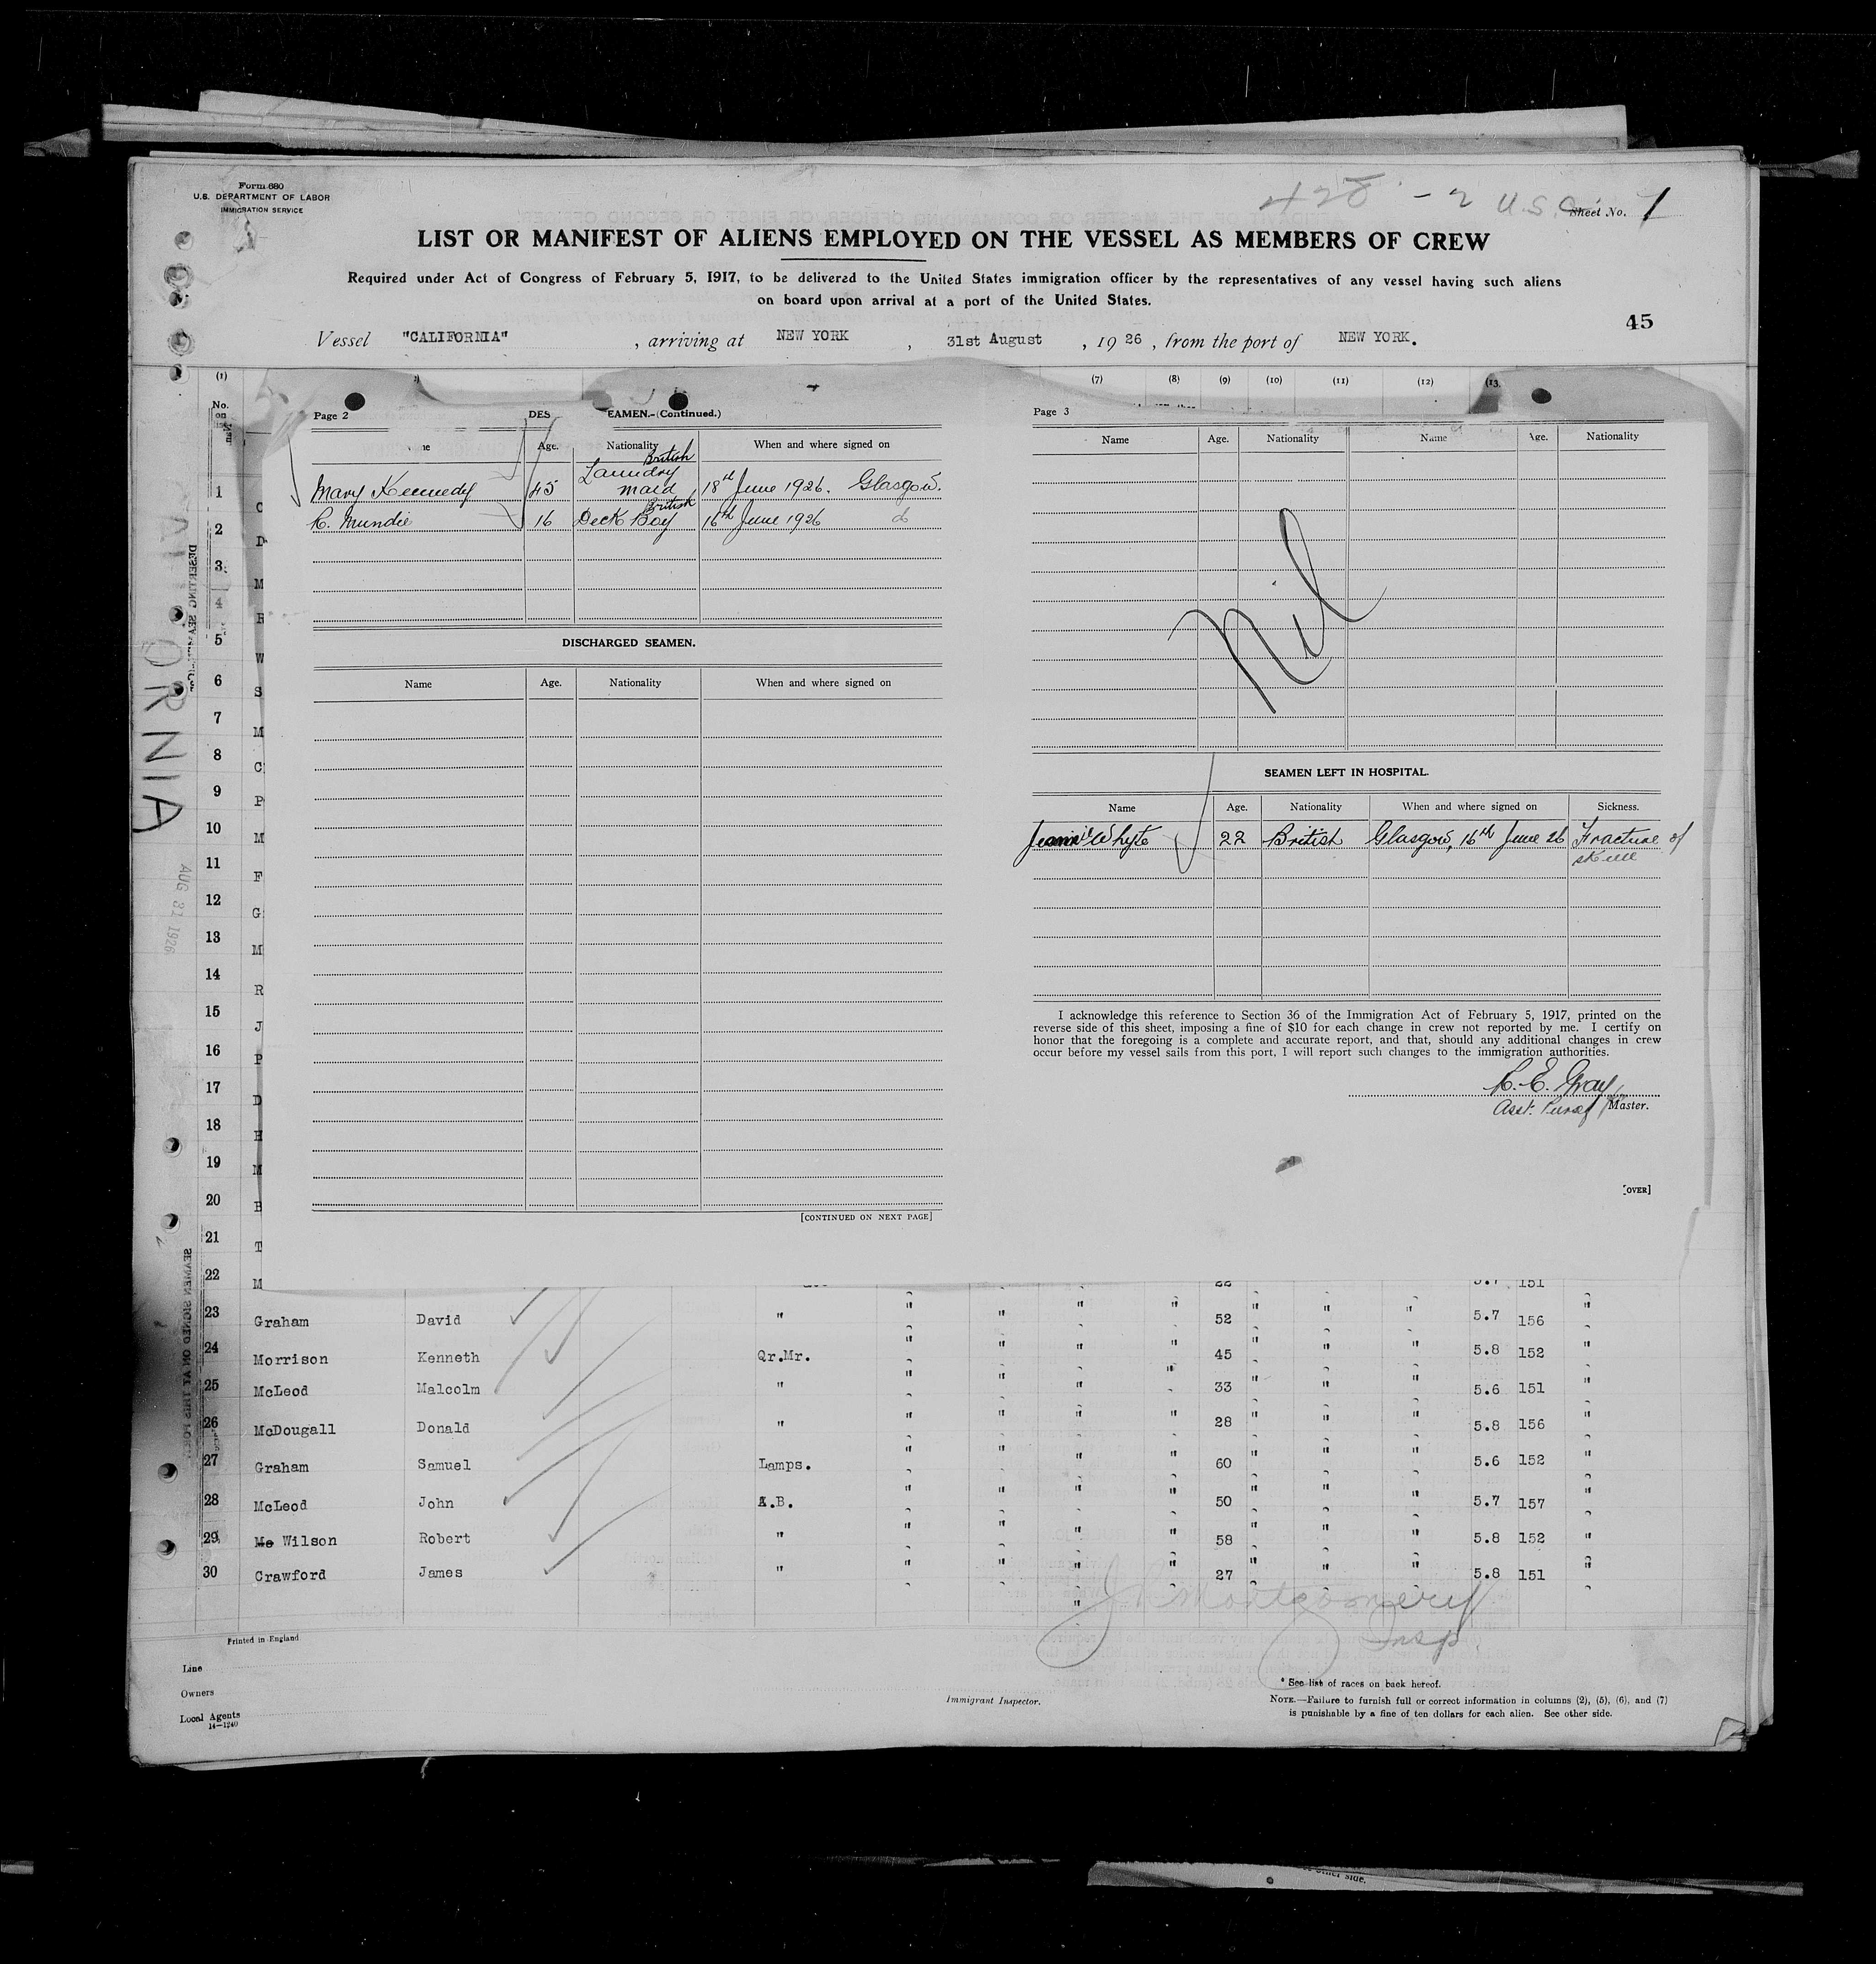 Form 680
U.S. DEPARTMENT OF LABOR
IMMIGRATION SERVICE
428 - 2 U.S.C.
Sheet No. 1
LIST OR MANIFEST OF ALIENS EMPLOYED ON THE VESSEL AS MEMBERS OF CREW
Required under Act of Congress of February 5, 1917, to be delivered to the United States immigration officer by the representatives of any vessel having such aliens
on board upon arrival at a port of the United States.
45
Vessel "CALIFORNIA", arriving at NEW YORK, 31st August, 1926, from the port of NEW YORK.
(1) (7) (8) (9) (10) (11) (12) (13.
No.
on
Page 2 DES EAMEN.-(Continued.)
Age. Nationality When and where signed on
Mary Kennedy 45 British Laundry maid 18th June 1926. Glasgow.
C. Mundie 16 British Deck Boy 16th June 1926 do
DISCHARGED SEAMEN.
Name Age. Nationality When and where signed on
[CONTINUED ON NEXT PAGE]
Page 3
Name Age. Nationality Name Age. Nationality
Nil
SEAMEN LEFT IN HOSPITAL.
Name Age. Nationality When and where signed on Sickness.
Jeannie Whyte 22 British Glasgow, 16th June 26 Fracture of
skull
I acknowledge this reference to Section 36 of the Immigration Act of February 5, 1917, printed on the
reverse side of this sheet, imposing a fine of $10 for each change in crew not reported by me. I certify on
honor that the foregoing is a complete and accurate report, and that, should any additional changes in crew
occur before my vessel sails from this port, I will report such changes to the immigration authorities.
C. E. Gray
Asst. Purser Master.
[OVER]
CALIFORNIA
AUG 31 1926
DESERTING SEAMEN
SEAMEN SIGNED ON AT THIS PORT
1
2 C
3 D
4 M
5 R
6 W
7 S
8 M
9 C
10 P
11 M
12 F
13 G
14 M
15 R
16 J
17 P
18 D
19 H
20 M
21 B
T
22 M 22 5.7 151
23 Graham David " " " " " 52 " " " 5.7 156 "
24 Morrison Kenneth Qr.Mr. " " " " 45 " " " 5.8 152 "
25 McLeod Malcolm " " " " " 33 " " " 5.6 151 "
26 McDougall Donald " " " " " 28 " " " 5.8 156 "
27 Graham Samuel Lamps. " " " " 60 " " " 5.6 152 "
28 McLeod John A.B. " " " " 50 " " " 5.7 157 "
29 Mc Wilson Robert " " " " " 58 " " " 5.8 152 "
30 Crawford James " " " " " 27 " " " 5.8 151 "
J Montgomery
Insp.
Printed in England
Line
Owners
Local Agents
14-1240
Immigrant Inspector.
* See list of races on back hereof.
NOTE.—Failure to furnish full or correct information in columns (2), (5), (6), and (7)
is punishable by a fine of ten dollars for each alien. See other side.
other side.